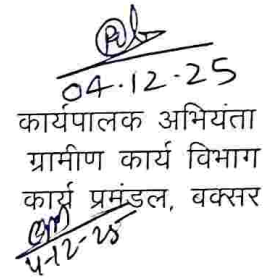 04.12.25
कार्यपालक अभियंता
ग्रामीण कार्य विभाग
कार्य प्रमंडल, बक्सर
4-12-25